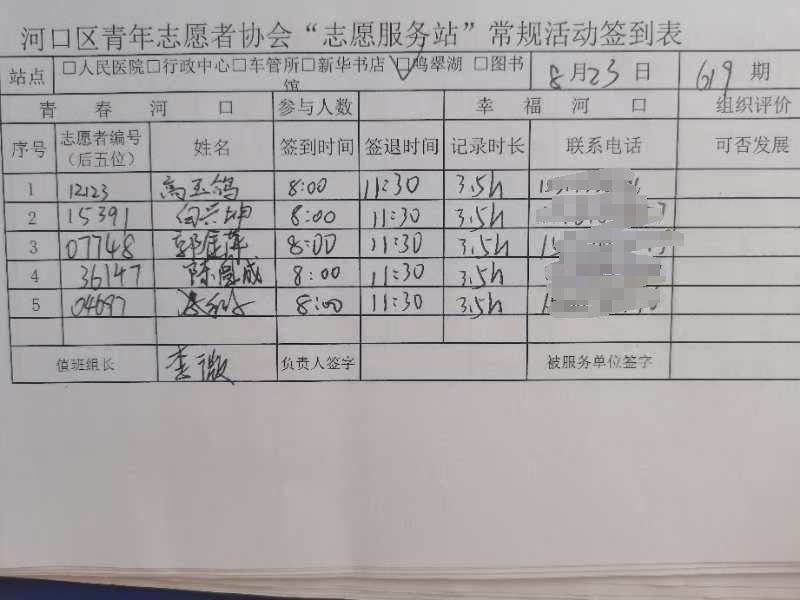 河口区青年志愿者协会“志愿服务站”常规活动签到表
站点 □人民医院□行政中心□车管所□新华书店 □鸣翠湖 □图书馆 8月23日 619期
青春河口 参与人数 幸福河口 组织评价
序号 志愿者编号（后五位） 姓名 签到时间 签退时间 记录时长 联系电话 可否发展
1 12123 高玉鸽 8:00 11:30 3.5h
2 15391 向兴坤 8:00 11:30 3.5h
3 07748 郭 萍 8:00 11:30 3.5h
4 36147 陈 成 8:00 11:30 3.5h
5 04697 8:00 11:30 3.5h
值班组长 李薇 负责人签字 被服务单位签字